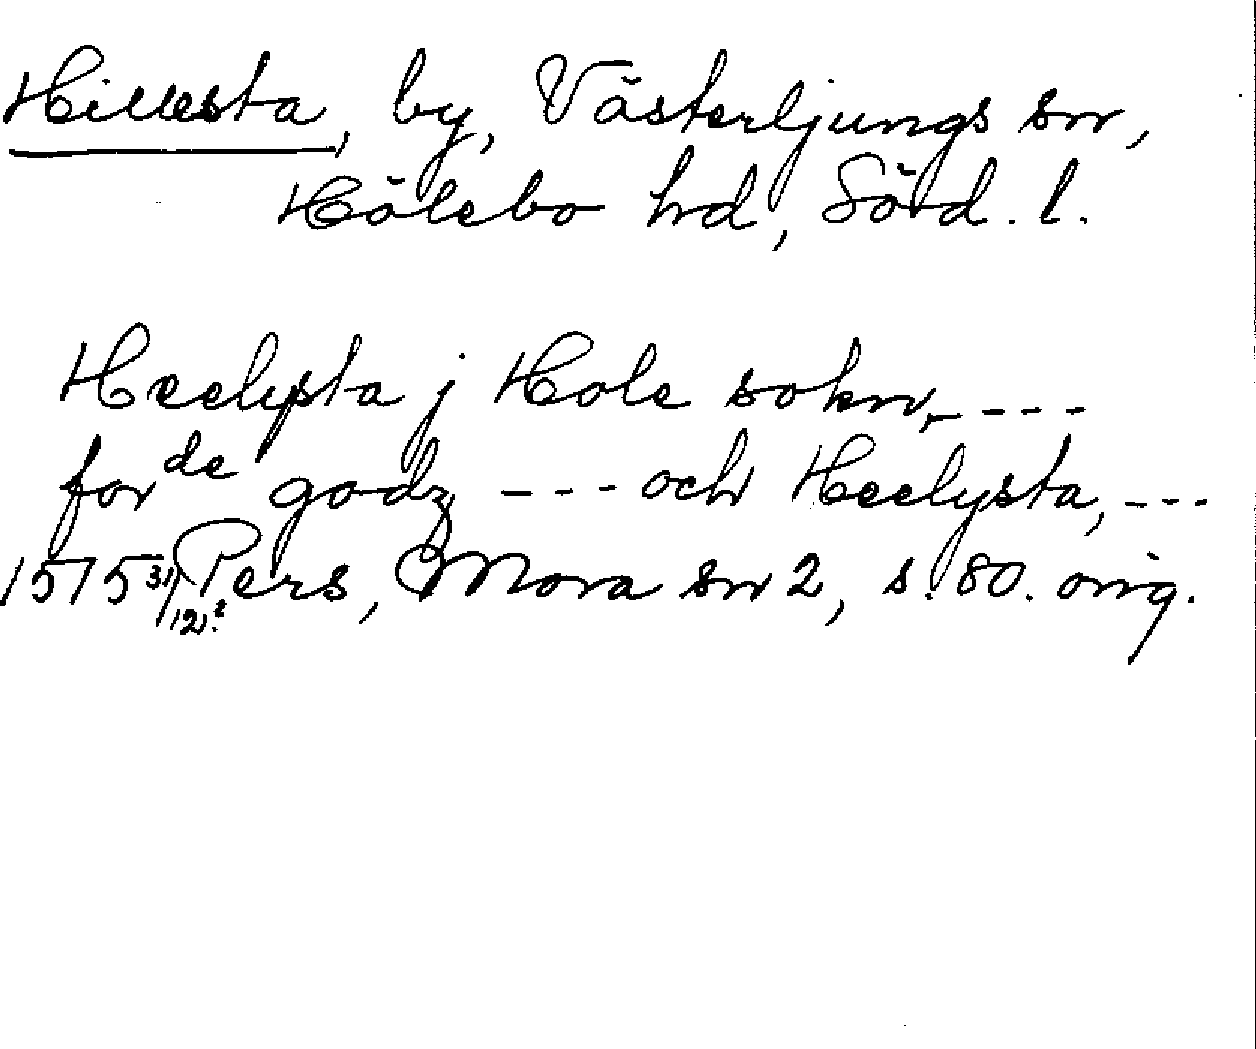 Hillesta, by, Västerljungs sn,
Hölebo hd, Söd. l.
Heelysta j Hole sokn, ----
forde godz --- och Heelysta, ---
1575 31/12? Pers, Mora sn 2, s. 80. orig.